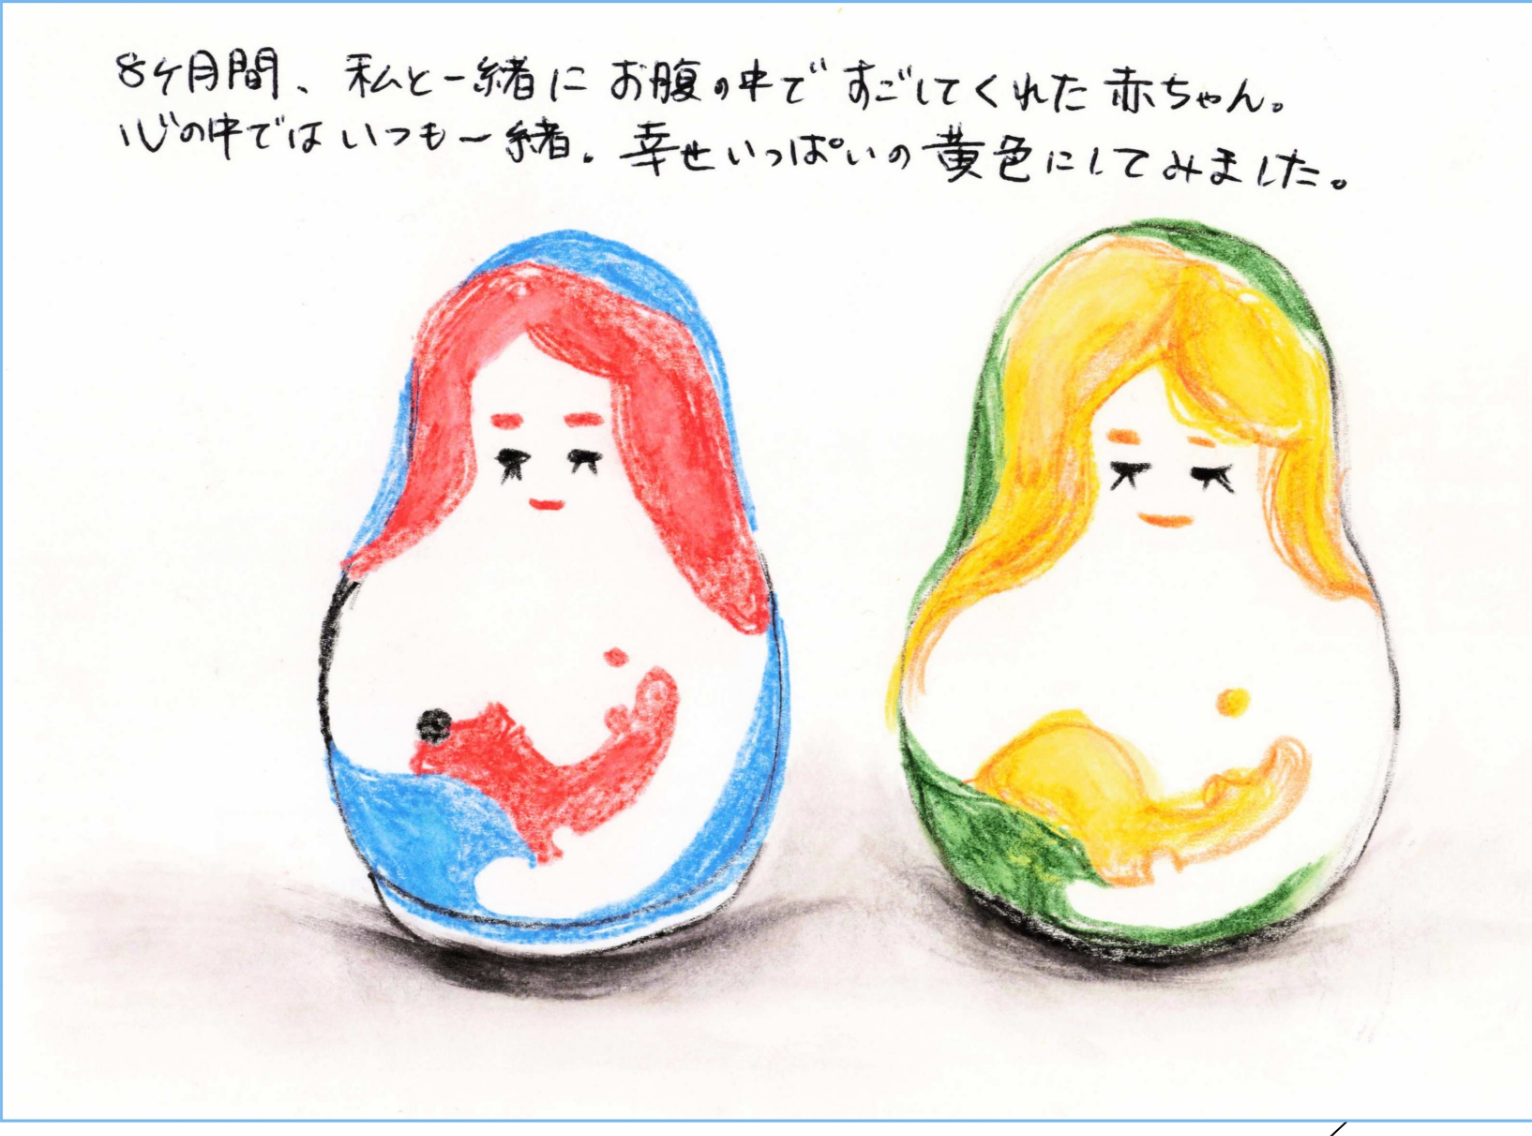 8ケ月間、私と一緒にお腹の中ですごしてくれた赤ちゃん。
心の中ではいつも一緒。幸せいっぱいの黄色にしてみました。